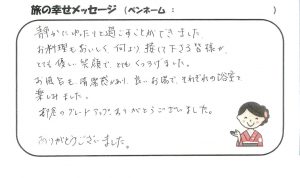 旅の幸せメッセージ （ペンネーム ： ）
静かにゆったりと過ごすことができました。
お料理もおいしく 何より接して下さる皆様が、
とても優しい笑顔で、とてもくつろげました。
お風呂も清潔感があり、良いお湯で、それぞれの浴室を
楽しみました。
お部屋のグレードアップ、ありがとうございました。
ありがとうございました。